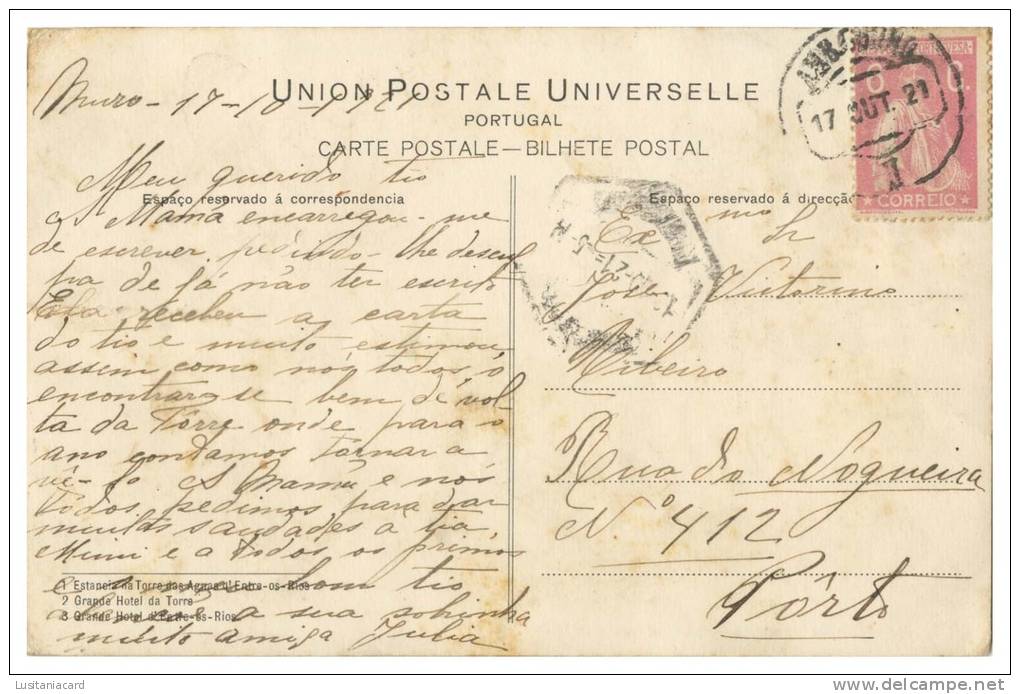 UNION POSTALE UNIVERSELLE
PORTUGAL
CARTE POSTALE—BILHETE POSTAL
Espaço reservado á correspondencia
Espaço reservado á direcção
CORREIO
17 OUT. 21
Muro - 17-10-1921
Meu querido tio
A Mamã encarregou-me
de escrever, pedindo-lhe descul
pa de já não ter escrito
Ela recebeu a carta
do tio e muito estimou
assem como nós todos, o
encontrar-se bem de vol
ta da Torre onde para o
ano contamos tornar a
vê-lo A Mamã e nós
todos pedimos para dar
muitas saudades a tia
Mimi e a todos os primos
bom tio
a sua sobinha
muito amiga Julia
1 Estancia na Torre das Aguas d'Entre-os-Rios
2 Grande Hotel da Torre
3 Grande Hotel d'Entre-os-Rios
Ex mo Sr
José Victorino
Ribeiro
Rua do Nogueira
Nº 412
Pôrto
Lusitaniacard
delcampe.net